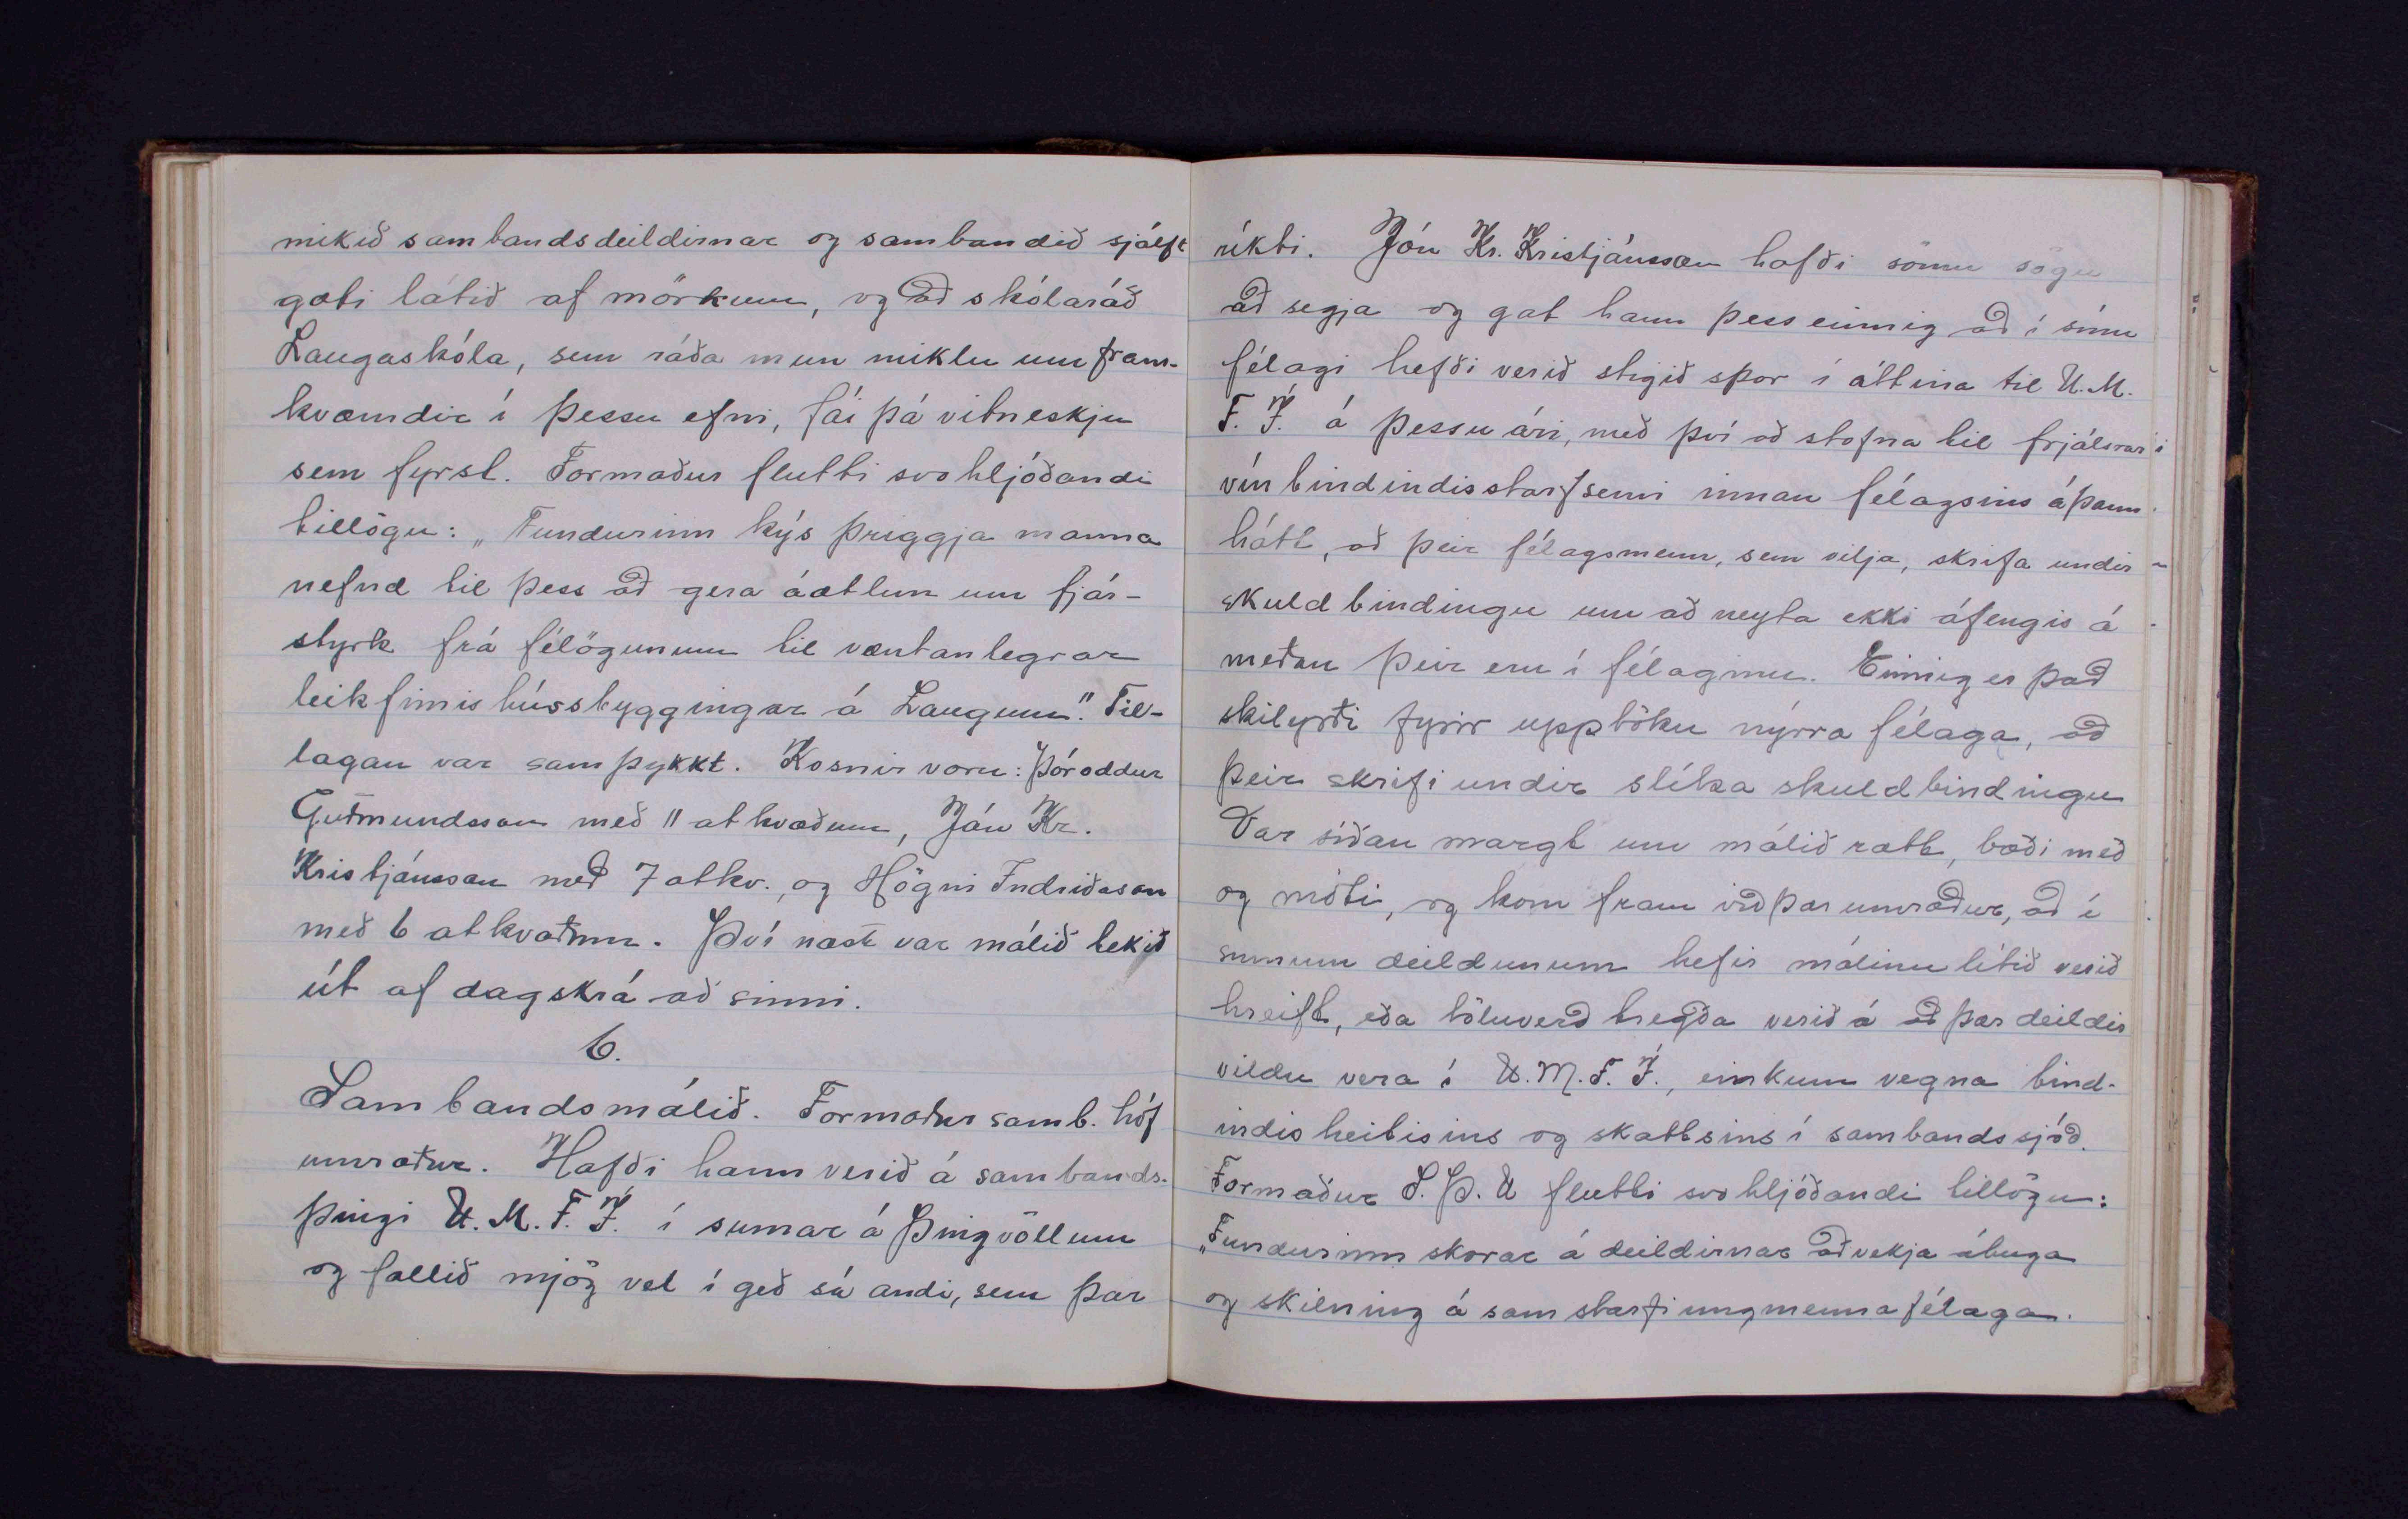 mikið sambandsdeildirnar og sambandið sjálft
gæti látið af mörkum, og að skólaráð
Laugaskóla, sem ráða mun miklu um fram-
kvæmdir í þessu efni, fái þá vitneskju
sem fyrst. Formaður flutti svohljóðandi
tillögu: „Fundurinn kýs þriggja manna
nefnd til þess að gera áætlun um fjár-
styrk frá félögunum til væntanlegrar
leikfimishússbyggingar á Laugum". Til-
lagan var samþykkt. Kosnir voru: Þóroddur
Guðmundsson með 11 atkvæðum, Jón Kr.
Kristjánsson með 7 atkv., og Högni Indriðason
með 6 atkvæðum. Því næst var málið tekið
út af dagskrá að sinni.
6.
Sambandsmálið. Formaður samb. hóf
umræður. Hafði hann verið á sambands-
þingi U.M.F.Í. í sumar á Þingvöllum
og fallið mjög vel í geð sá andi, sem þar
ríkti. Jón Kr. Kristjánsson hafði sömu sögu
að segja og gat hann þess einnig að í sínu
félagi hefði verið stigið spor í áttina til U.M.
F.Í. á þessu ári, með því að stofna til frjálsrar
vínbindindisstarfsemi innan félagsins á þann
hátt, að þeir félagsmenn, sem vilja, skrifa undir
skuldbindingu um að neyta ekki áfengis á
meðan þeir eru í félaginu. Einnig er það
skilyrði fyrir upptöku nýrra félaga, að
þeir skrifi undir slíka skuldbindingu
Var síðan margt um málið rætt, bæði með
og móti, og kom fram við þær umræður, að í
sumum deildunum hefir málinu lítið verið
hreift, eða töluverð tregða verið á að þær deildir
vildu vera í U.M.F.Í., einkum vegna bind-
indisheitisins og skattsins í sambandssjóð.
Formaður S.Þ.U flutti svohljóðandi tillögu:
„Fundurinn skorar á deildirnar að vekja áhuga
og skilning á samstarfi ungmennafélaga.